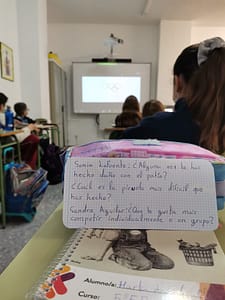 Sonia Lafuente: ¿Alguna vez te has
hecho daño con el patín?
¿Cuál es la pirueta más difícil que
has hecho?
Sandra Aguilar: ¿Qué te gusta más
competir individualmente o en grupo?
Alumno/a:
Curso: